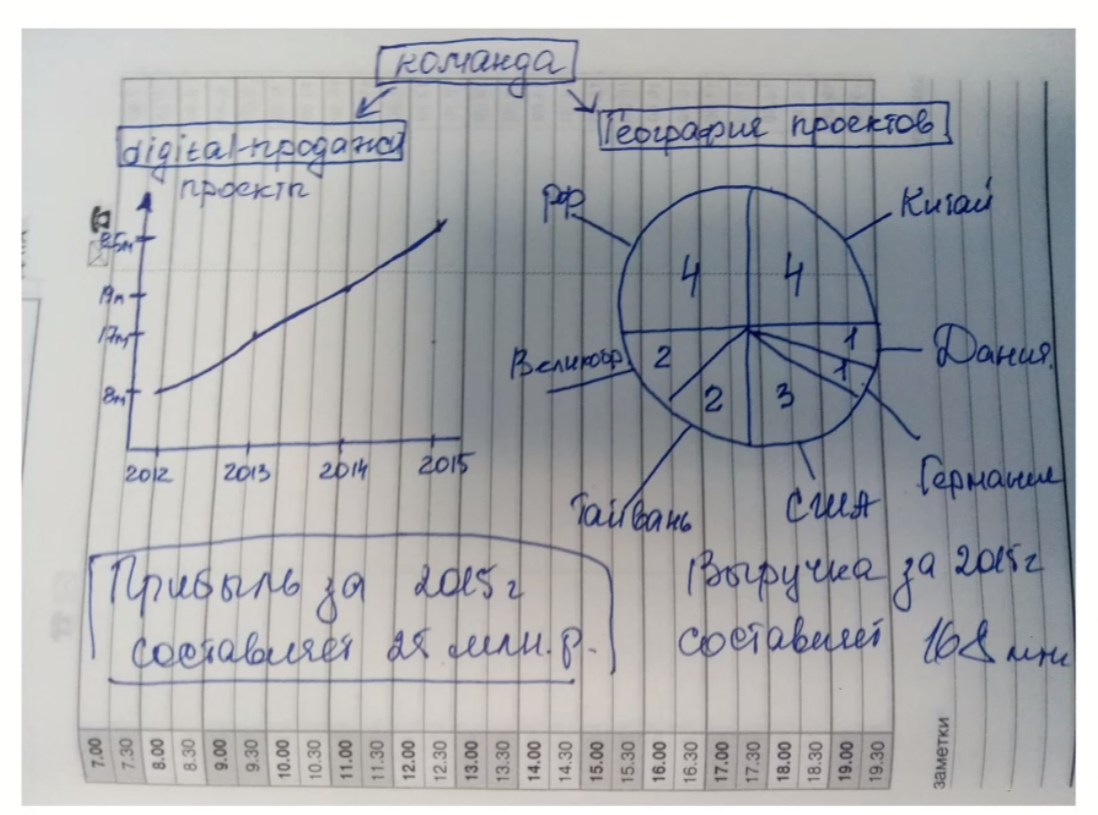 команда
digital-продажа
География проектов
проекты
25м
19м
17м
8м
2012 2013 2014 2015
РФ
Китай
4 4
Великобр.
2 2 3 1 1
Дания.
Тайвань
США
Германия
Прибыль за 2015г
составляет 25 млн. р.
Выручка за 2015г
составляет 168 млн
7.00 7.30 8.00 8.30 9.00 9.30 10.00 10.30 11.00 11.30 12.00 12.30 13.00 13.30 14.00 14.30 15.00 15.30 16.00 16.30 17.00 17.30 18.00 18.30 19.00 19.30
заметки